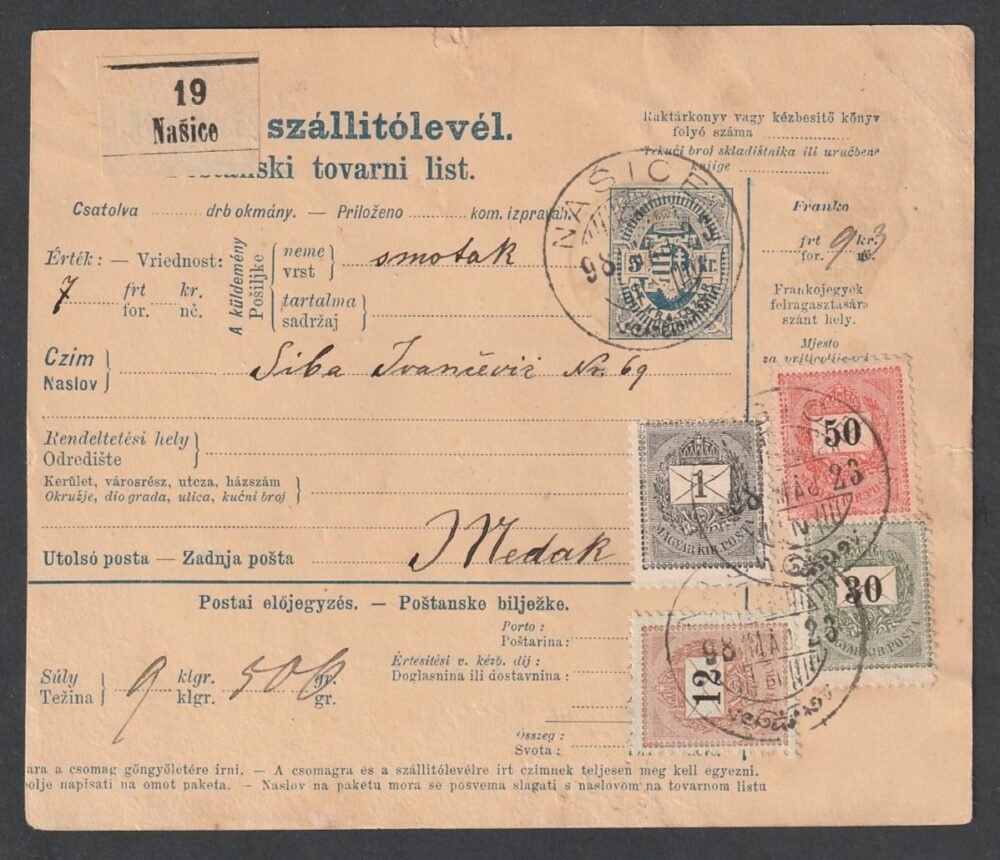 19
Našice
szállitólevél.
Poštanski tovarni list.
Raktárkonyv vagy kézbesitő könyv
folyó száma
Tekući broj skladištnika ili uručbene
knjige
Csatolva drb okmány. — Priloženo kom. izpravah.
NAŠICE
98
5 kr.
Franko
frt 93 kr.
for.
Frankojegyek
felragasztására
szánt hely.
Mjesto
Érték: — Vriednost:
7 frt kr.
for. nč.
A küldemény
Pošiljke
neme
vrst
smotak
tartalma
sadržaj
Czim
Naslov
Siba Ivančević Nr. 69
Rendeltetési hely
Odredište
Kerület, városrész, utcza, házszám
Okružje, dio grada, ulica, kućni broj
Utolsó posta — Zadnja pošta
Medak
50
1
MAGYAR KIR. POSTA
98 MÁJ. 23
30
MAGYAR KIR. POSTA
12
98 MÁJ. 23
Postai előjegyzés. — Poštanske bilježke.
Porto:
Poštarina:
Értesitési v. kézb. díj:
Doglasnina ili dostavnina:
Súly
Težina
9 klgr. 500 gr.
klgr. gr.
Összeg:
Svota:
ara a csomag göngyöletére irni. — A csomagra és a szállitólevélre irt czimnek teljesen meg kell egyezni.
olje napisati na omot paketa. — Naslov na paketu mora se posvema slagati s naslovom na tovarnom listu